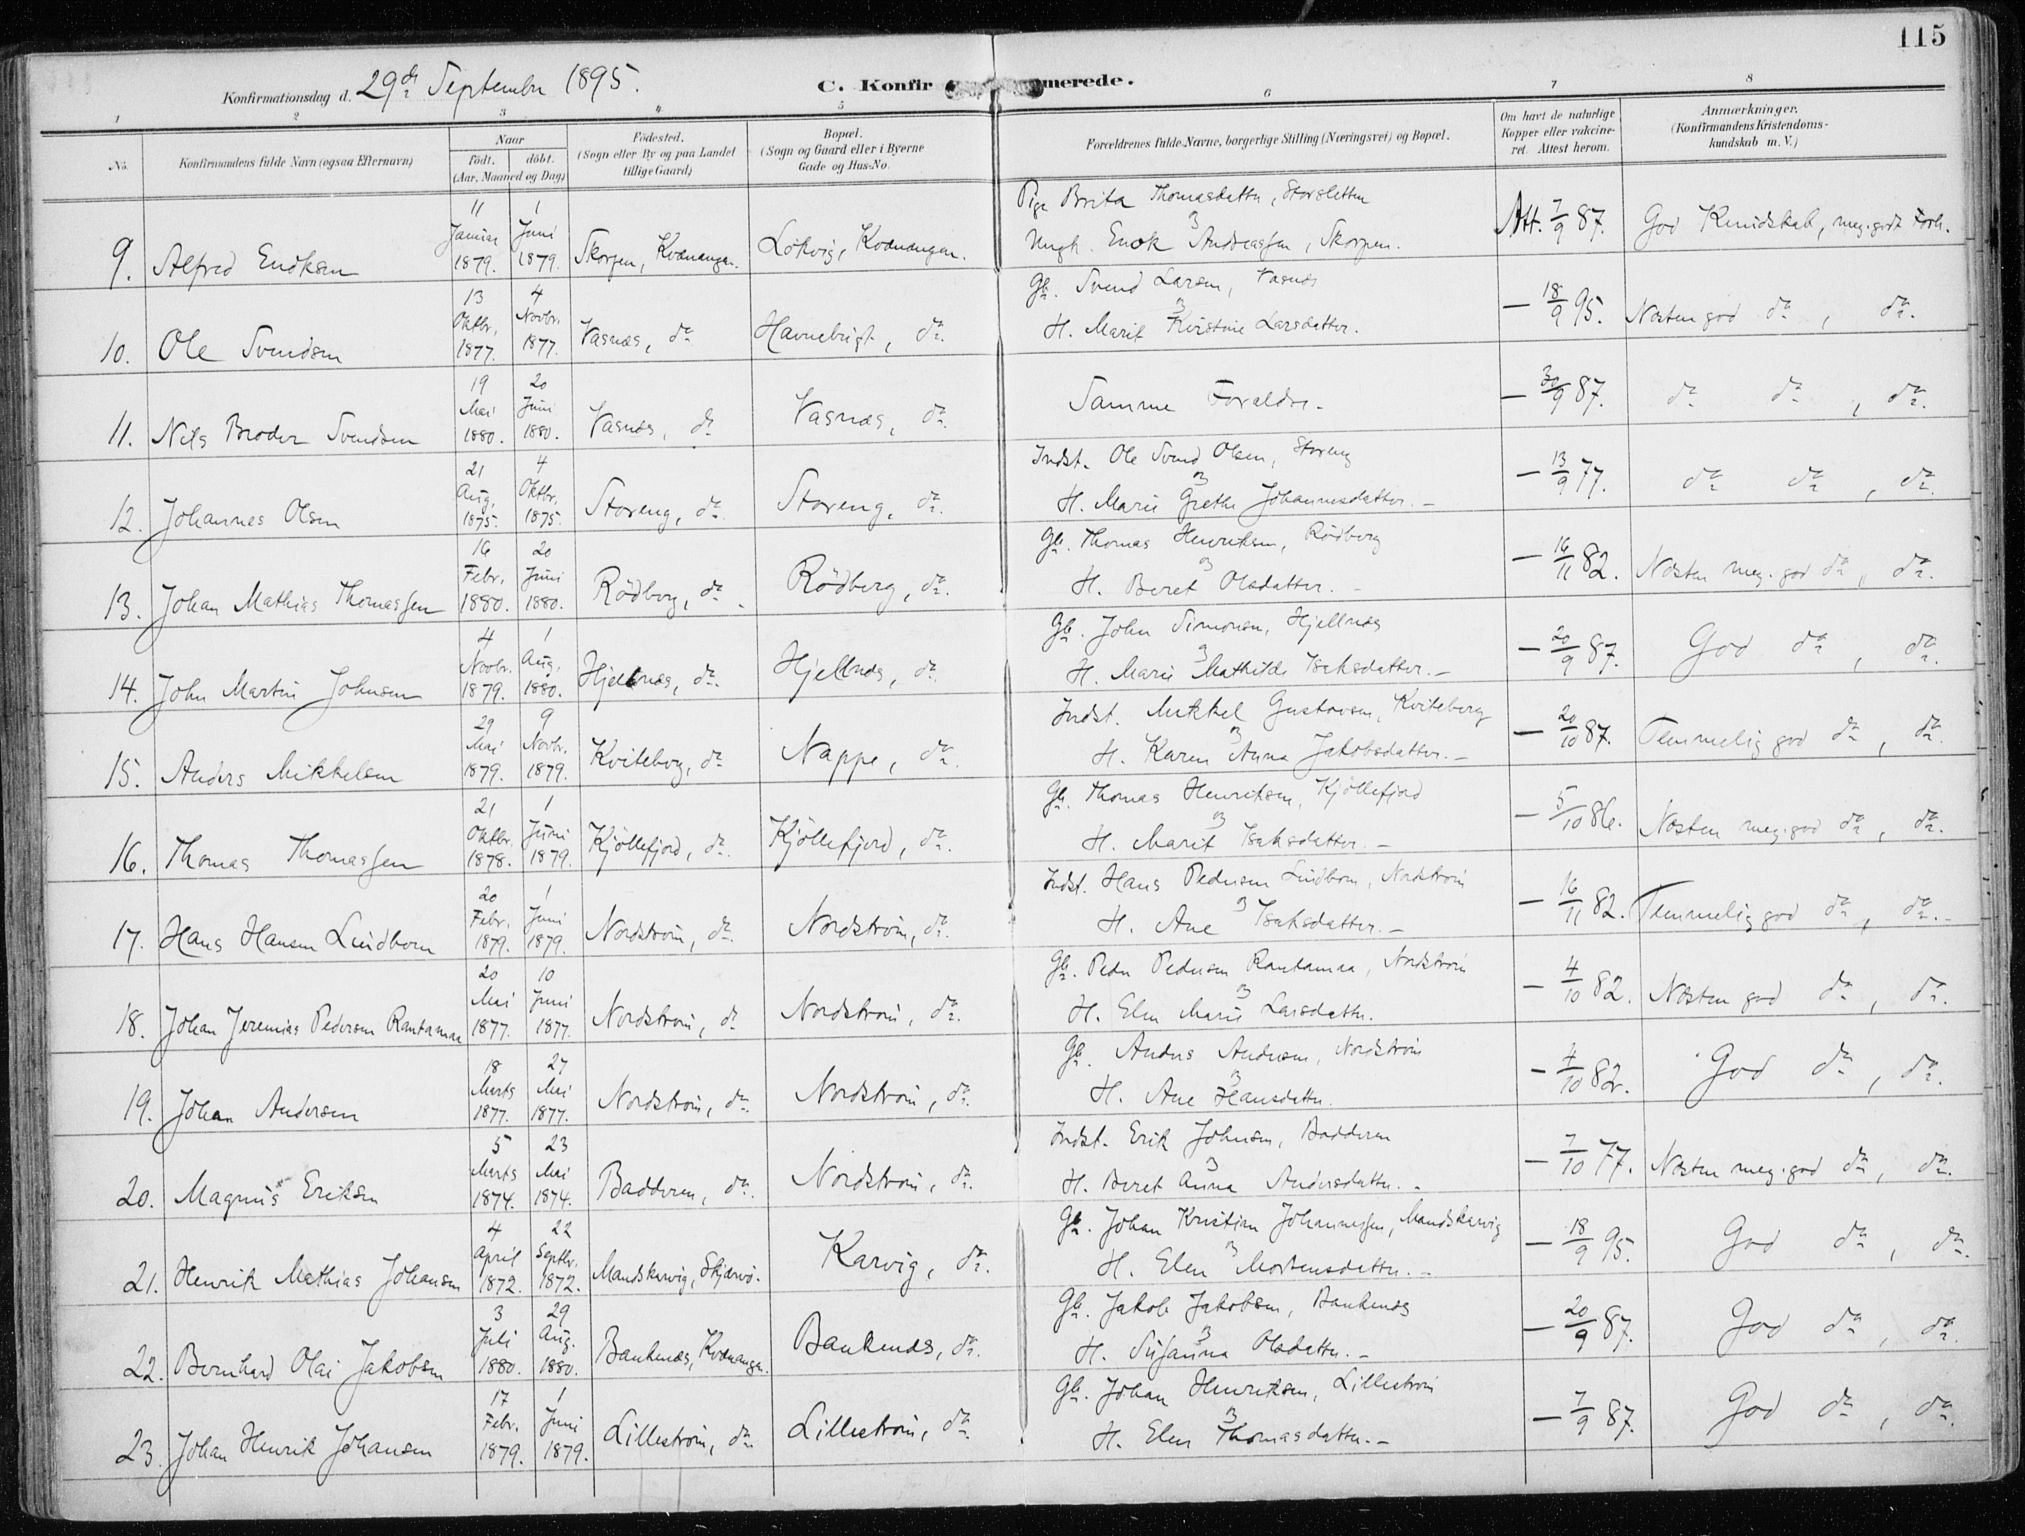 115
Konfirmationsdag d. 29de September 1895.
C. Konfirmerede.
1 2 3 4 5 6 7 8
No. Konfirmandens fulde Navn (ogsaa Efternavn) Naar Födt. döbt. (Aar, Maaned og Dag) Födested. (Sogn eller By og paa Landet tillige Gaard) Bopæl. (Sogn og Gaard eller i Byerne Gade og Hus-No. Forældrenes fulde Navne, borgerlige Stilling (Næringsvei) og Bopæl. Om havt de naturlige Kopper eller vakcineret. Attest herom. Anmærkninger. (Konfirmandens Kristendomskundskab m. V.)
9. Alfred Enoksen 11 Januar 1879. 1 Juni 1879. Skorpen, Kvænangen. Lökvig, Kvænangen. Pige Brita Thomasdatter, Storsletten Ungk. Enok Andreassen, Skorpen. Att. 7/9 87. God Kundskab, meg. godt Forh.
10. Ole Svendsen 13 Oktbr. 1877. 4 Novbr. 1877. Vasnæs, do Havnebugt, do. Gb. Svend Larsen, Vasnæs H. Marit Kristine Larsdatter. — 18/9 95. Næsten god do, do.
11. Nils Broder Svendsen 19 Mai 1880. 20 Juni 1880. Vasnæs, do Vasnæs, do. Samme Forældre. — 30/9 87. do do, do.
12. Johannes Olsen 21 Aug. 1875. 4 Oktbr. 1875. Storeng, do. Storeng, do. Indst. Ole Svend Olsen, Storeng H. Marie Grethe Johannesdatter. — — 13/9 77. do do, do.
13. Johan Mathias Thomassen 16 Febr. 1880. 20 Juni 1880. Rödberg, do. Rödberg, do. Gb. Thomas Henriksen, Rödberg H. Beret Olsdatter. — — 16/11 82. Næsten meg. god do, do.
14. John Martin Johnsen 4 Novbr. 1879. 1 Aug. 1880. Hjellnæs, do. Hjellnæs, do. Gb. John Simonsen, Hjellnæs H. Marie Mathilde Isaksdatter. — — 20/9 87. God do, do.
15. Anders Mikkelsen 29 Mai 1879. 9 Novbr. 1879. Kviteberg, do Nappe, do. Indst. Mikkel Gustavsen, Kviteberg H. Karen Anna Jakobsdatter. — — 20/10 87. Temmelig god do, do.
16. Thomas Thomassen 21 Oktbr. 1878. 1 Juni 1879. Kjöllefjord, do. Kjöllefjord, do. Gb. Thomas Henriksen, Kjöllefjord H. Marit Isaksdatter. — — 5/10 86. Næsten meg. god do, do.
17. Hans Hansen Lindbom 20 Febr. 1879. 1 Juni 1879. Nordstrøm, do. Nordstrøm, do. Indst. Hans Pedersen Lindbom, Nordstrøm H. Ane Isaksdatter. — — 16/11 82. Temmelig god do, do. —
18. Johan Jeremias Pedersen Rantamaa 20 Mai 1877. 10 Juni 1877. Nordstrøm, do Nordstrøm, do. Gb. Peder Pedersen Rantamaa, Nordstrøm H. Elen Marie Larsdatter. — 4/10 82. Næsten god do, do.
19. Johan Andersen 18 Marts 1877. 27 Mai 1877. Nordstrøm, do. Nordstrøm, do. Gb. Anders Andersen, Nordstrøm H. Ane Hansdatter. — 4/10 82. God do, do.
20. Magnus Eriksen 5 Marts 1874. 23 Mai 1874. Badderen, do. Nordstrøm, do. Indst. Erik Johnsen, Badderen H. Beret Anna Andersdatter. — — 7/10 77. Næsten meg. god do, do.
21. Henrik Mathias Johansen 4 April 1872. 22 Septbr. 1872. Mandskarvig, Skjærvö. Karvig, do. Gb. Johan Kristian Johannessen, Mandskarvig H. Elen Mortensdatter. — — 18/9 95. God do, do.
22. Bernhard Olai Jakobsen 3 Juli 1880. 29 Aug. 1880. Bankenæs, Kvænangen. Bankenæs, do. Gb. Jakob Jakobsen, Bankenæs H. Susanna Olsdatter. — — 20/9 87. God do, do.
23. Johan Henrik Johansen 17 Febr. 1879. 1 Juni 1879. Lillestrøm, do. Lillestrøm, do. Gb. Johan Henriksen, Lillestrøm H. Elen Thomasdatter. — — 7/9 87. God do, do.